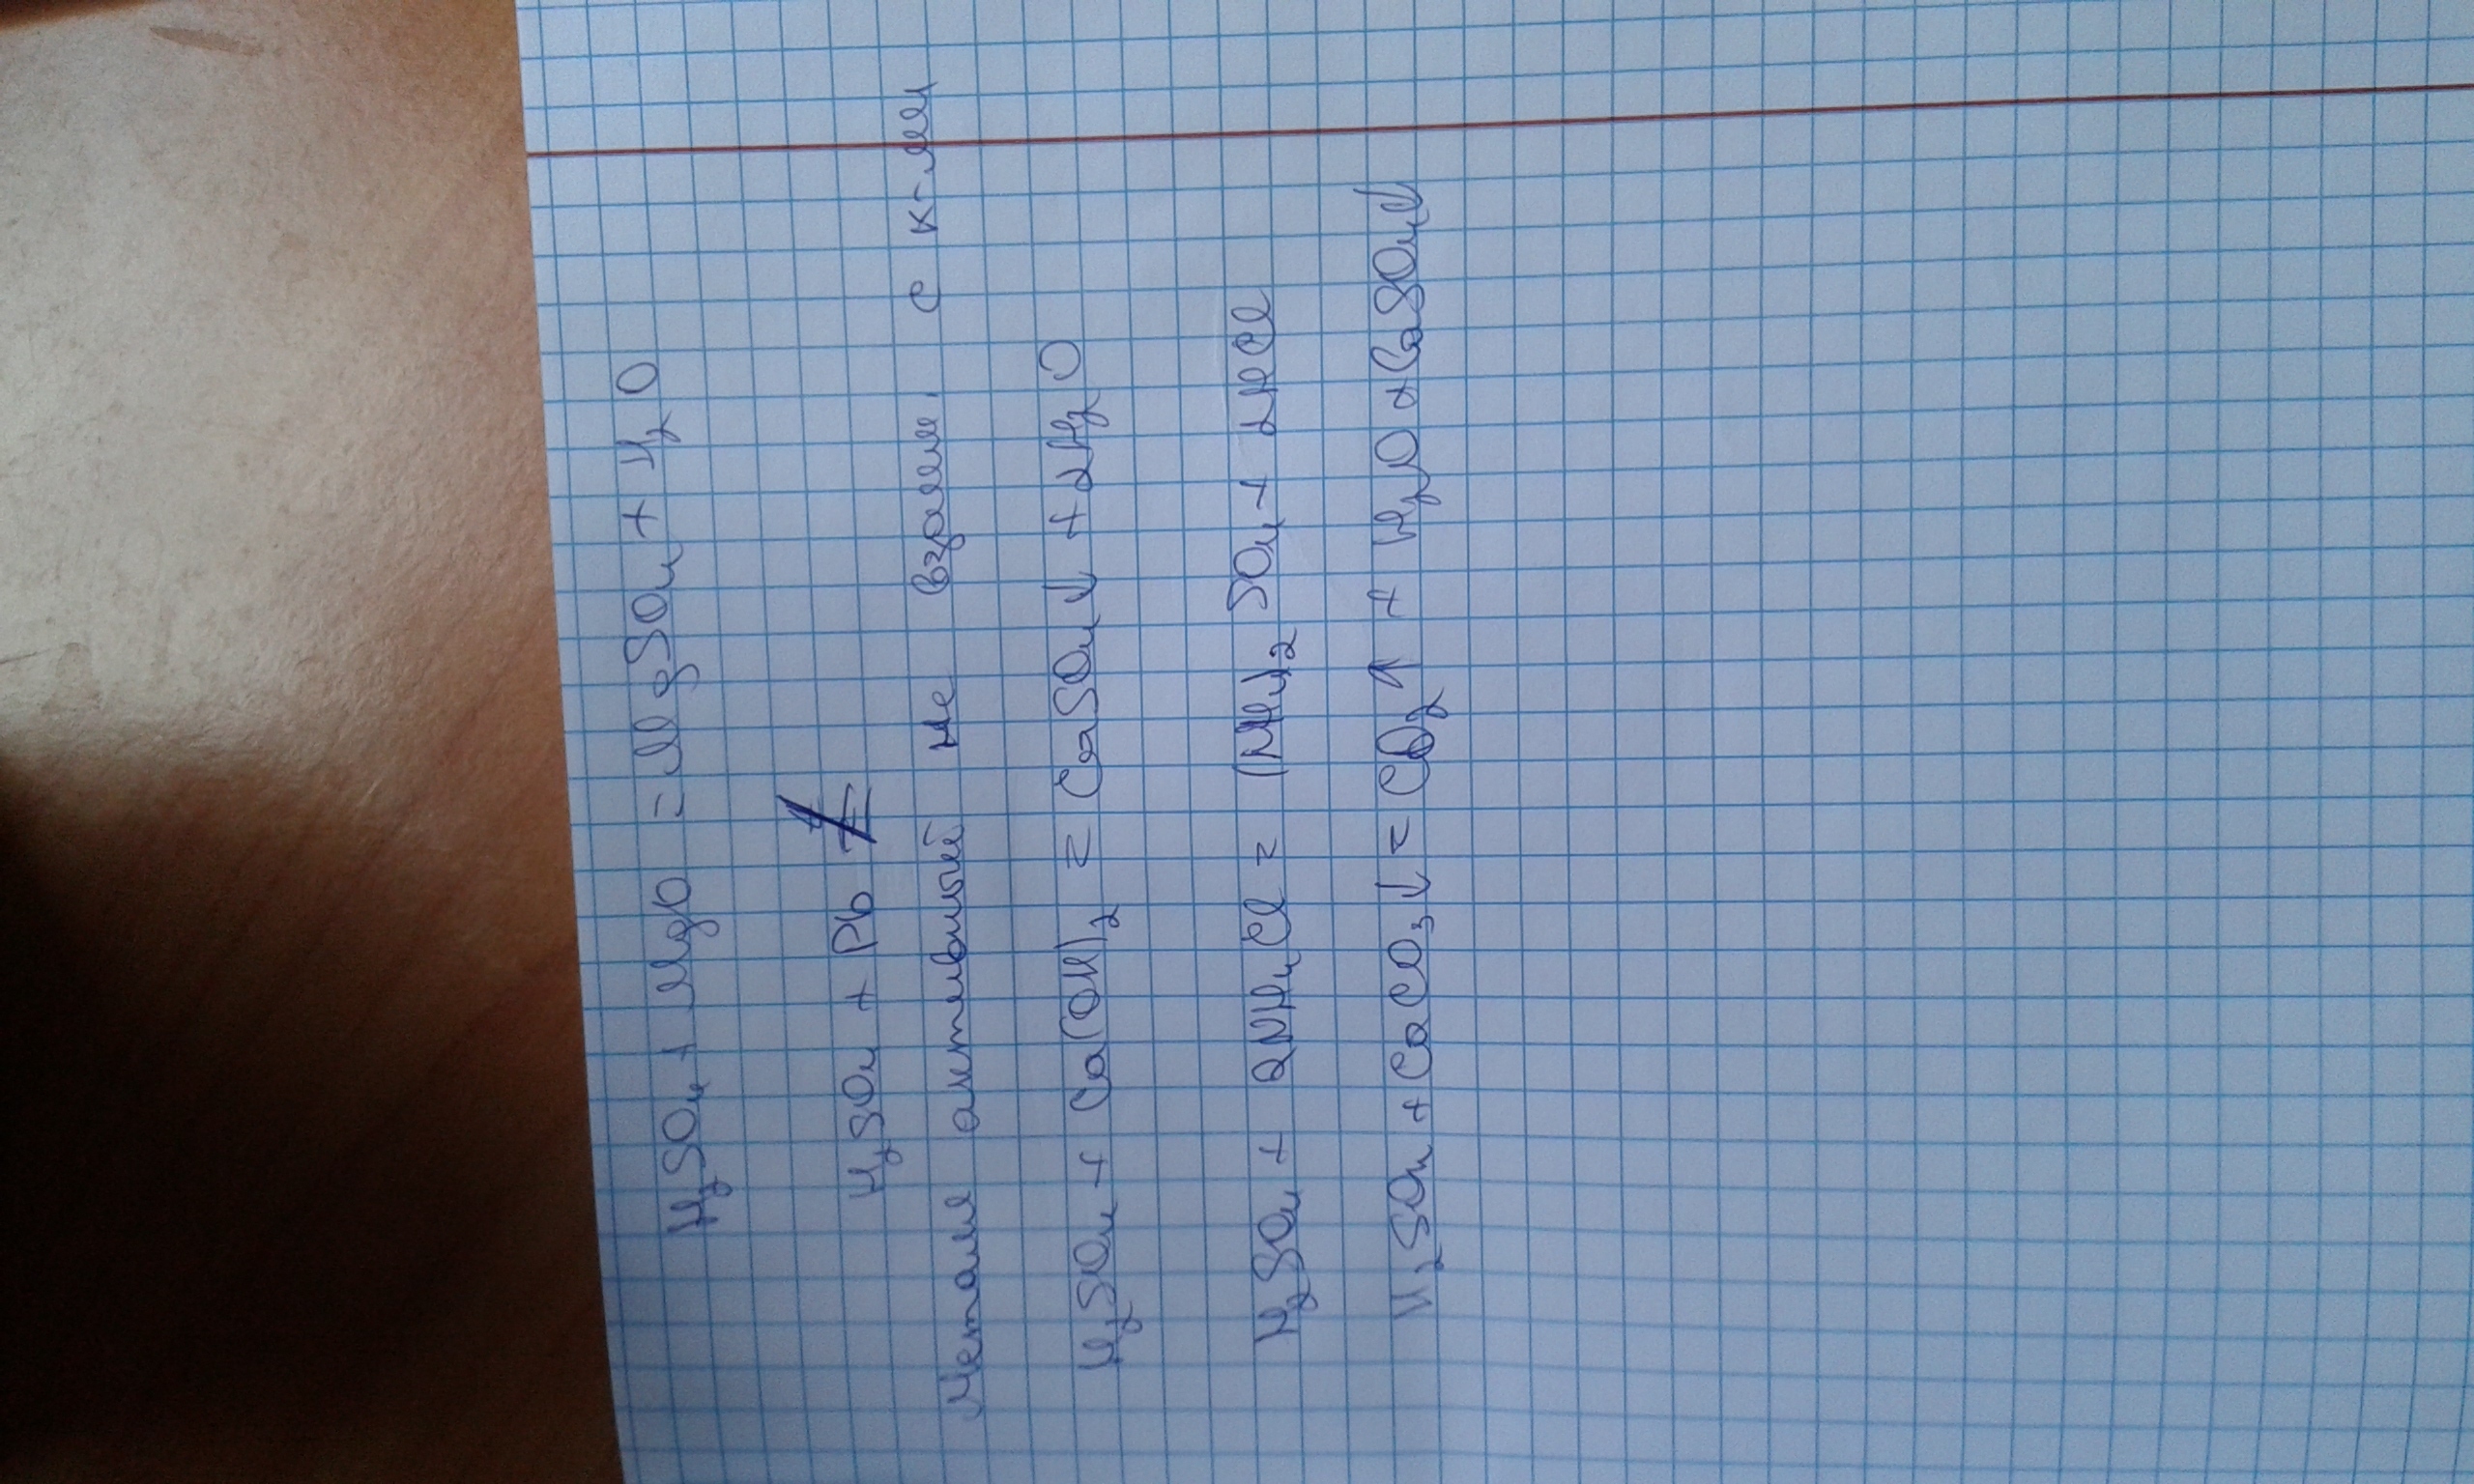 H₂SO₄ + MgO = MgSO₄ + H₂O
H₂SO₄ + Pb ≠
Металл активный не взаим. с к-лем
H₂SO₄ + Ca(OH)₂ = CaSO₄↓ + 2H₂O
H₂SO₄ + 2NH₄Cl = (NH₄)₂SO₄ + 2HCl
H₂SO₄ + CaCO₃↓ = CO₂↑ + H₂O + CaSO₄↓